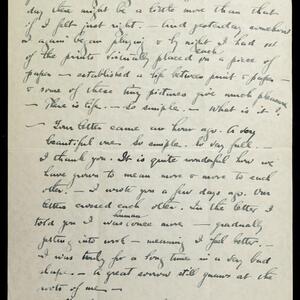 day there might be a little more than that
if I felt just right — And yesterday somehow
again began playing & by night I had
of the prints visually placed on a piece of
each
paper — established a life between print & paper —
& some of these tiny pictures give such pleasure
— There is life. — So simple. — What is it?
— Your letter came an hour ago. — a very
beautiful one. So simple. So very full. —
I thank you. It is quite wonderful how we
have grown to mean more & more to each
other. — I wrote you a few days ago. Our
letters crossed each other. In the letter I
human
told you I was once more — gradually
getting into work — meaning I feel better. —
I was truly for a long time in a very bad
shape. — A great sorrow still gnaws at the
roots of me —